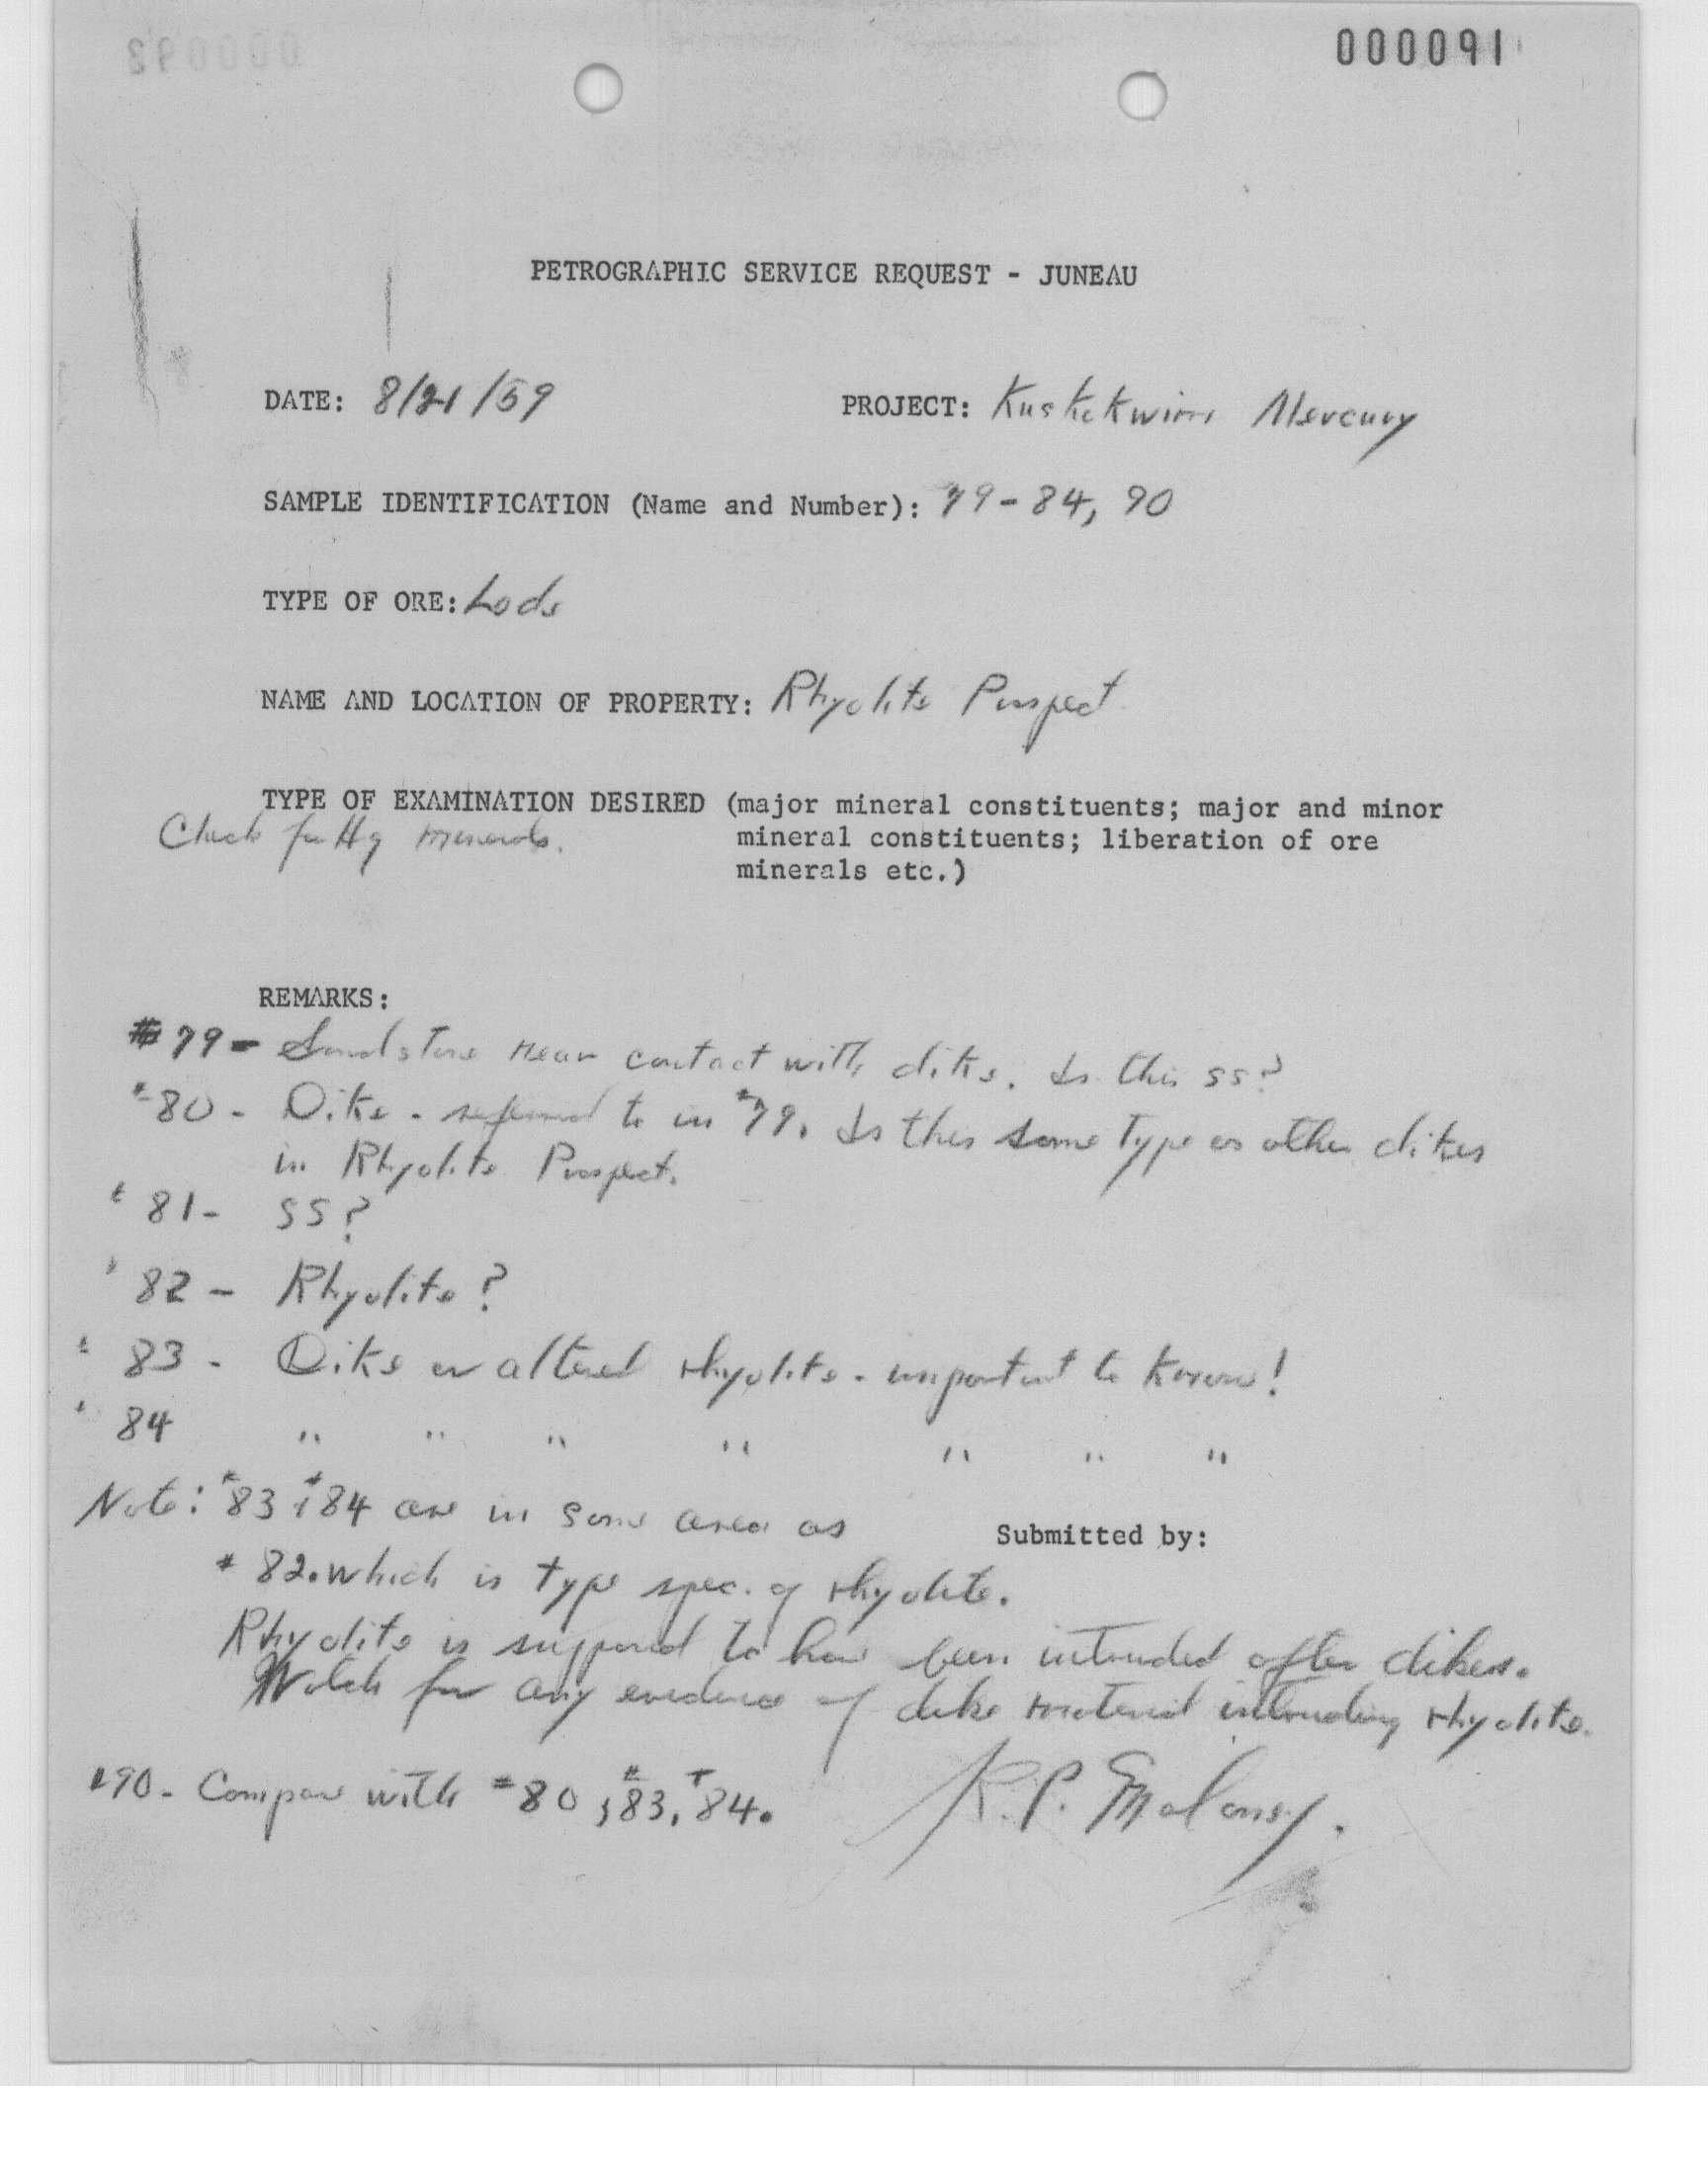 000091
PETROGRAPHIC SERVICE REQUEST - JUNEAU
DATE: 8/21/59 PROJECT: Kuskokwim Mercury
SAMPLE IDENTIFICATION (Name and Number): 79-84, 90
TYPE OF ORE: Lode
NAME AND LOCATION OF PROPERTY: Rhyolite Prospect
TYPE OF EXAMINATION DESIRED (major mineral constituents; major and minor
Check for Hg minerals. mineral constituents; liberation of ore
minerals etc.)
REMARKS:
#79 - Sandstone near contact with dike. Is this ss?
#80 - Dike - referred to in #79. Is this same type as other dikes
in Rhyolite Prospect.
#81- SS?
#82 - Rhyolite?
#83 - Dike or altered rhyolite - important to know!
#84 " " " " " " "
Note: #83 & #84 are in same area as
Submitted by:
#82. which is type spec. of rhyolite.
Rhyolite is supposed to have been intruded after dikes.
Watch for any evidence of dike material intruding rhyolite.
#90- Compare with #80, #83, #84.
R.P. Maloney.